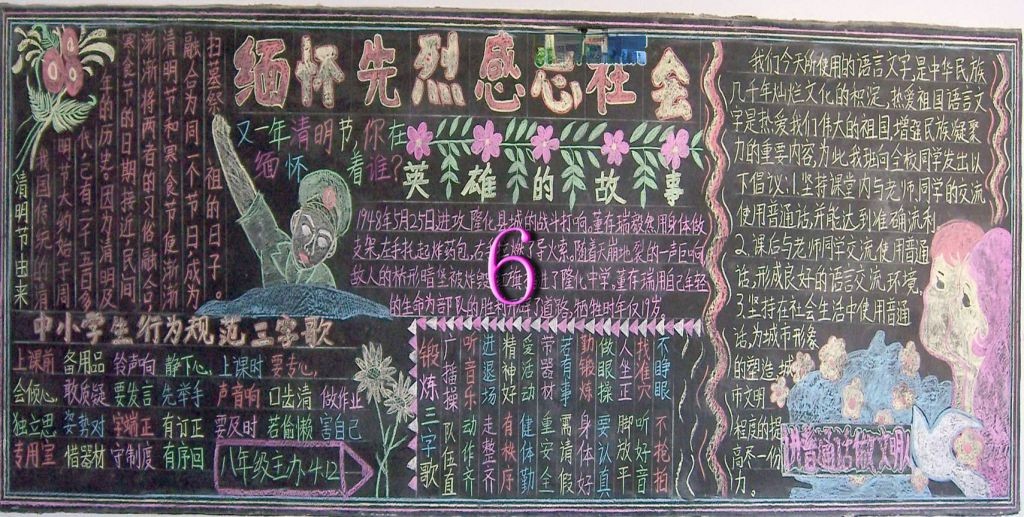 缅怀先烈感恩社会
又一年清明节,你在
缅怀着谁?
扫墓祭 祖的日子。
融合为同一个节日,成为
清明节和寒食节便渐渐
渐渐将两者的习俗融合
寒食节的日期接近,民间
年的历史。因为清明及
代,已有二千五百多
明节大约始于周
我国传统的清
清明节由来
英雄的故事
1948年5月25日进攻隆化县城的战斗打响,董存瑞毅然用身体做
支架,左手托起炸药包,右 导火索,随着天崩地裂的一声巨响
敌人的桥形暗堡被炸毁 了隆化中学,董存瑞用自己年轻
的生命为部队的胜利 道路,牺牲时年仅19岁。
6
中小学生行为规范三字歌
上课前 备用品 铃声响 静下心,上课时 要专心,
会倾心,敢质疑 要发言 先举手 声音响 口齿清 做作业
独立思 姿势对 字端正 有订正 要及时 若偷懒 害自己
专用室 惜器材 守制度 有序回
八年级主办4.12
锻炼三字歌
广播操 队伍直
听音乐 动作齐
进退场 走整齐
精神好 有秩序
爱活动 健体勤
带器材 重安全
若有事 需请假
勤锻炼 身体好
做眼操 要认真
人坐正 脚放平
找准穴 听好音
不睁眼 不挖拍
我们今天所使用的语言文字,是中华民族
几千年灿烂文化的积淀,热爱祖国语言文
字是热爱我们伟大的祖国,增强民族凝聚
力的重要内容,为此,我班向全校同学发出以
下倡议:1.坚持课堂内与老师同学的交流
使用普通话,并能达到准确流利
2.课后与老师同学交流使用普通
话,形成良好的语言交流环境,
3.坚持在社会生活中使用普通
话,为城市形象
的塑造,城
市文明
程度的提
高尽一份
力。
讲普通话做文明人